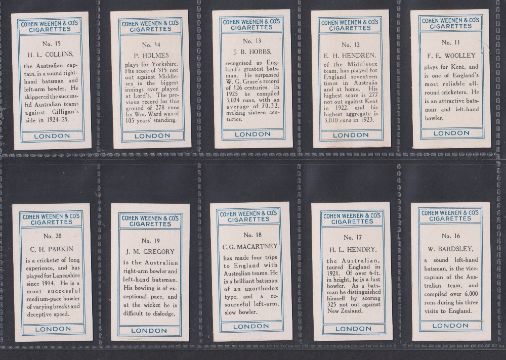 COHEN WEENEN & CO'S
CIGARETTES
No. 15
H. L. COLLINS,
the Australian cap-
tain, is a sound right-
hand batsman and
left-arm bowler. He
skippered the success-
ful Australian teams
against Gilligan's
side in 1924-25.
LONDON
COHEN WEENEN & CO'S
CIGARETTES
No. 14
P. HOLMES
plays for Yorkshire.
His score of 315 not
out against Middle-
sex is the biggest
innings ever played
at Lord's. The pre-
vious record for this
ground of 278 runs
by Mr. Ward was of
105 years' standing.
LONDON
COHEN WEENEN & CO'S
CIGARETTES
No. 13
J. B. HOBBS,
recognised as Eng-
land's greatest bats-
man. He surpassed
W. G. Grace's record
of 126 centuries. In
1925 he compiled
3,024 runs, with an
average of 70.32,
making sixteen cen-
turies.
LONDON
COHEN WEENEN & CO'S
CIGARETTES
No. 12
E. H. HENDREN,
of the Middlesex
team, has played for
England seventeen
times in Australia
and at home. His
highest score is 277
not out against Kent
in 1922, and his
highest aggregate is
3,010 runs in 1923.
LONDON
COHEN WEENEN & CO'S
CIGARETTES
No. 11
F. E. WOOLLEY
plays for Kent, and is
one of England's
most reliable all-
round cricketers. He
is an attractive bats-
man and left-hand
bowler.
LONDON
COHEN WEENEN & CO'S
CIGARETTES
No. 20
C. H. PARKIN
is a cricketer of long
experience, and has
played for Lancashire
since 1914. He is a
most successful
medium-pace bowler
of varying breaks and
deceptive speed.
LONDON
COHEN WEENEN & CO'S
CIGARETTES
No. 19
J. M. GREGORY
is the Australian
right-arm bowler and
left-hand batsman.
His bowling is of ex-
ceptional pace, and
at the wicket he is
difficult to dislodge.
LONDON
COHEN WEENEN & CO'S
CIGARETTES
No. 18
C. G. MACARTNEY
has made four trips
to England with
Australian teams. He
is a brilliant batsman
of an unorthodox
type, and a re-
sourceful left-arm
slow bowler.
LONDON
COHEN WEENEN & CO'S
CIGARETTES
No. 17
H. L. HENDRY,
the Australian,
toured England in
1921. Of over 6-ft.
in height, he is a fast
bowler. As a bats-
man he distinguished
himself by scoring
325 not out against
New Zealand.
LONDON
COHEN WEENEN & CO'S
CIGARETTES
No. 16
W. BARDSLEY,
a sound left-hand
batsman, is the vice-
captain of the Aus-
tralian team, and
compiled over 6,000
runs during his three
visits to England.
LONDON